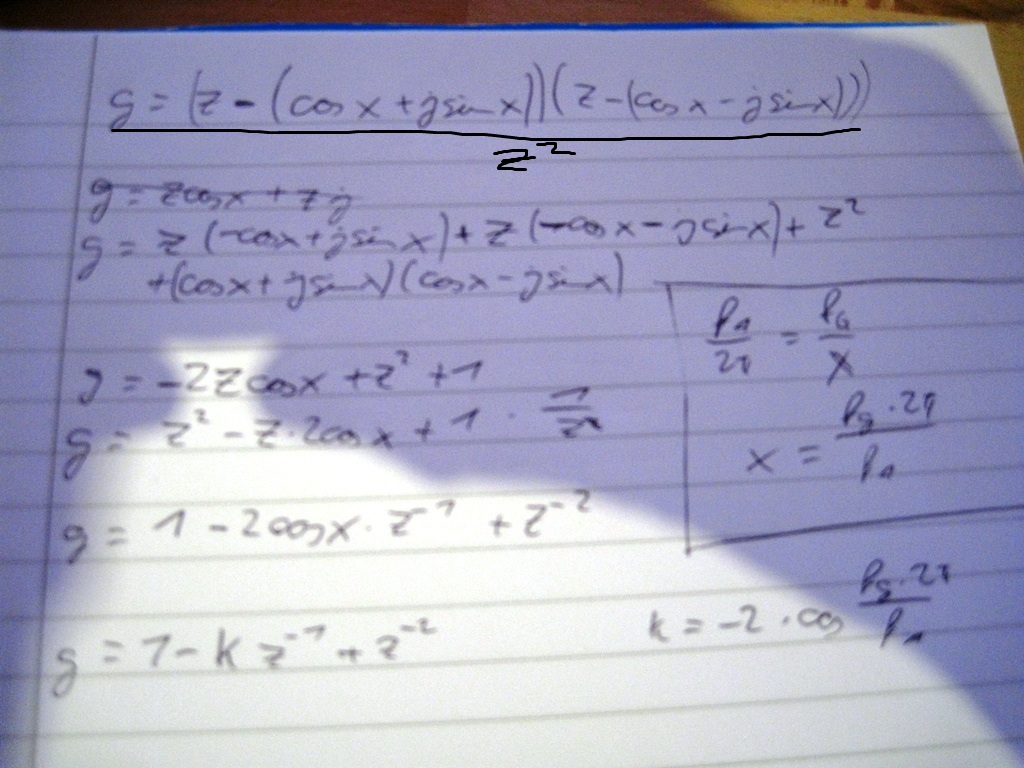 g = (z - (cos x + j sin x))(z - (cos x - j sin x)))
z²
g = z cos x + z j
g = z (-cos x + j sin x) + z (-cos x - j sin x) + z²
+ (cos x + j sin x)(cos x - j sin x)
g = -2z cos x + z² + 1
g = z² - z · 2 cos x + 1 · 1/z²
g = 1 - 2 cos x · z⁻¹ + z⁻²
g = 1 - k z⁻¹ + z⁻²
x =
k = -2 · cos